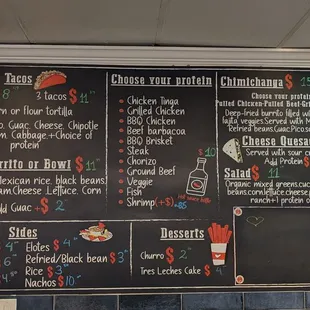 Tacos
8" 3 tacos $11"
corn or flour tortilla
Guac, Cheese, Chipotle
Cabbage.+Choice of
protein
Burrito or Bowl $11"
Mexican rice, black beans
Cheese, Lettuce, Corn
Add Guac +$2"
Choose your protein
Chicken Tinga
Grilled Chicken
BBQ Chicken
Beef barbacoa
BBQ Brisket
Steak
Chorizo
Ground Beef
Veggie
Fish
Shrimp(+$)
hot sauce
Chimichanga $15
Choose your protein
Pulled Chicken-Pulled Beef-
Deep fried burrito filled
fajita veggies.Served with
Refried beans,Guac,Pico,
Cheese Quesa
Served with sour
Add Protein $
Salad $11
Organic mixed greens,
corn,lettuce,cheese,
ranch+1 protein
Sides
4" Elotes $4"
Refried/Black bean $3"
Rice $3"
Nachos $10"
Desserts
Churro $2"
Tres Leches Cake $4"